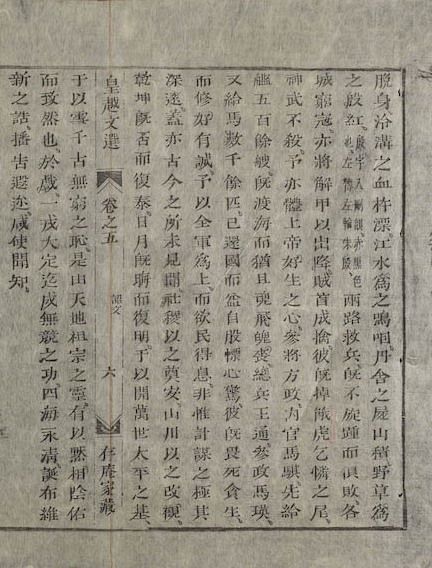 脫身泠溝之血杵漂江水爲之鳴咽丹舍之屍山積野草爲
之殷紅殷字入刪韻亦黑色也左傳左輪朱殷兩路救兵旣不旋踵而俱敗各
城窮寇亦將解甲以出降賊首成擒彼旣掉餓虎乞憐之尾
神武不殺予亦體上帝好生之心參將方政内官馬騏先給
艦五百餘艘旣渡海而猶且魂飛魄喪總兵王通參政馬瑛
又給馬數千餘匹已還國而益自股慄心驚彼旣畏死貪生
而修好有誠予以全軍爲上而欲民得息非惟計謀之極其
深遠蓋亦古今之所未見聞社稷以之奠安山川以之改觀
乾坤旣否而復泰日月旣晦而復明于以開萬世太平之基
皇越文選 卷之五 詔文 六 存庵家藏
于以雪千古無窮之恥是由天地祖宗之靈有以默相陰佑
而致然也於戲一戎大定迄成無競之功四海永清誕布維
新之誥播告遐迩咸使聞知